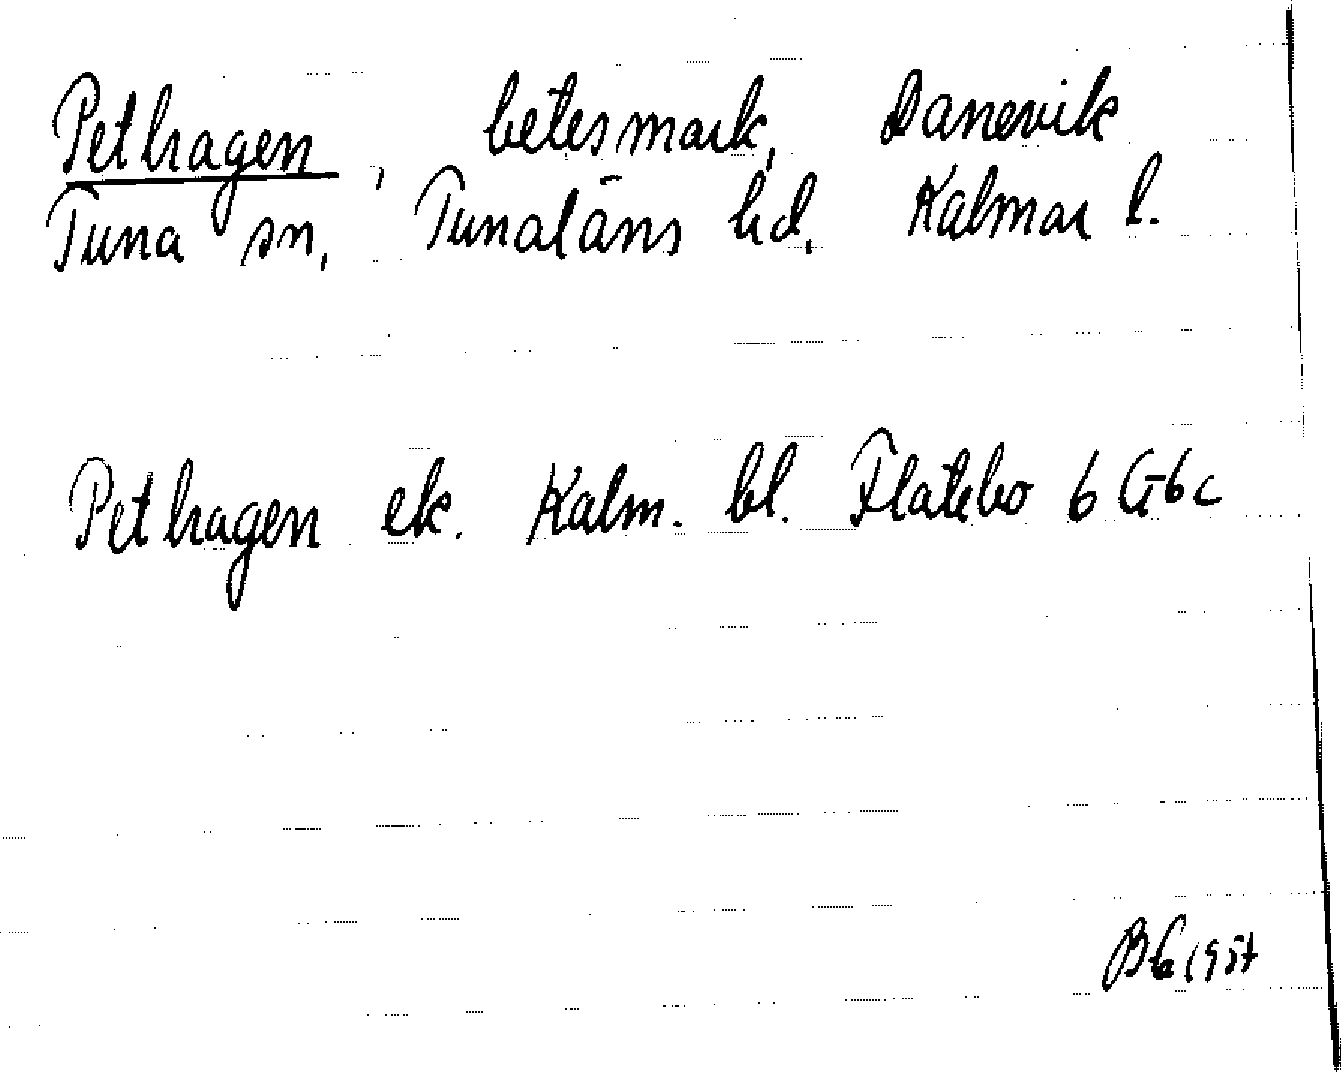 Pethagen, betesmark, Danevik
Tuna sn, Tunaläns hd. Kalmar l.
Pethagen ek. Kalm. bl. Flatebo 6 G 6 c
1957